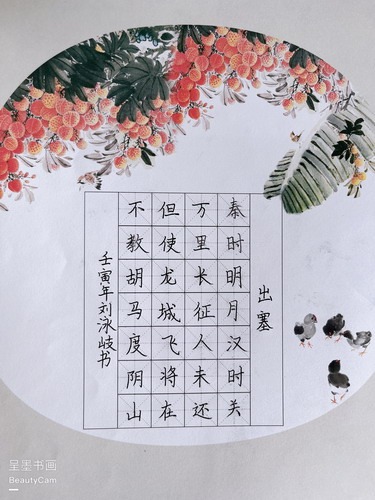 出塞
秦时明月汉时关
万里长征人未还
但使龙城飞将在
不教胡马度阴山
壬寅年刘泳岐书
呈墨书画
BeautyCam